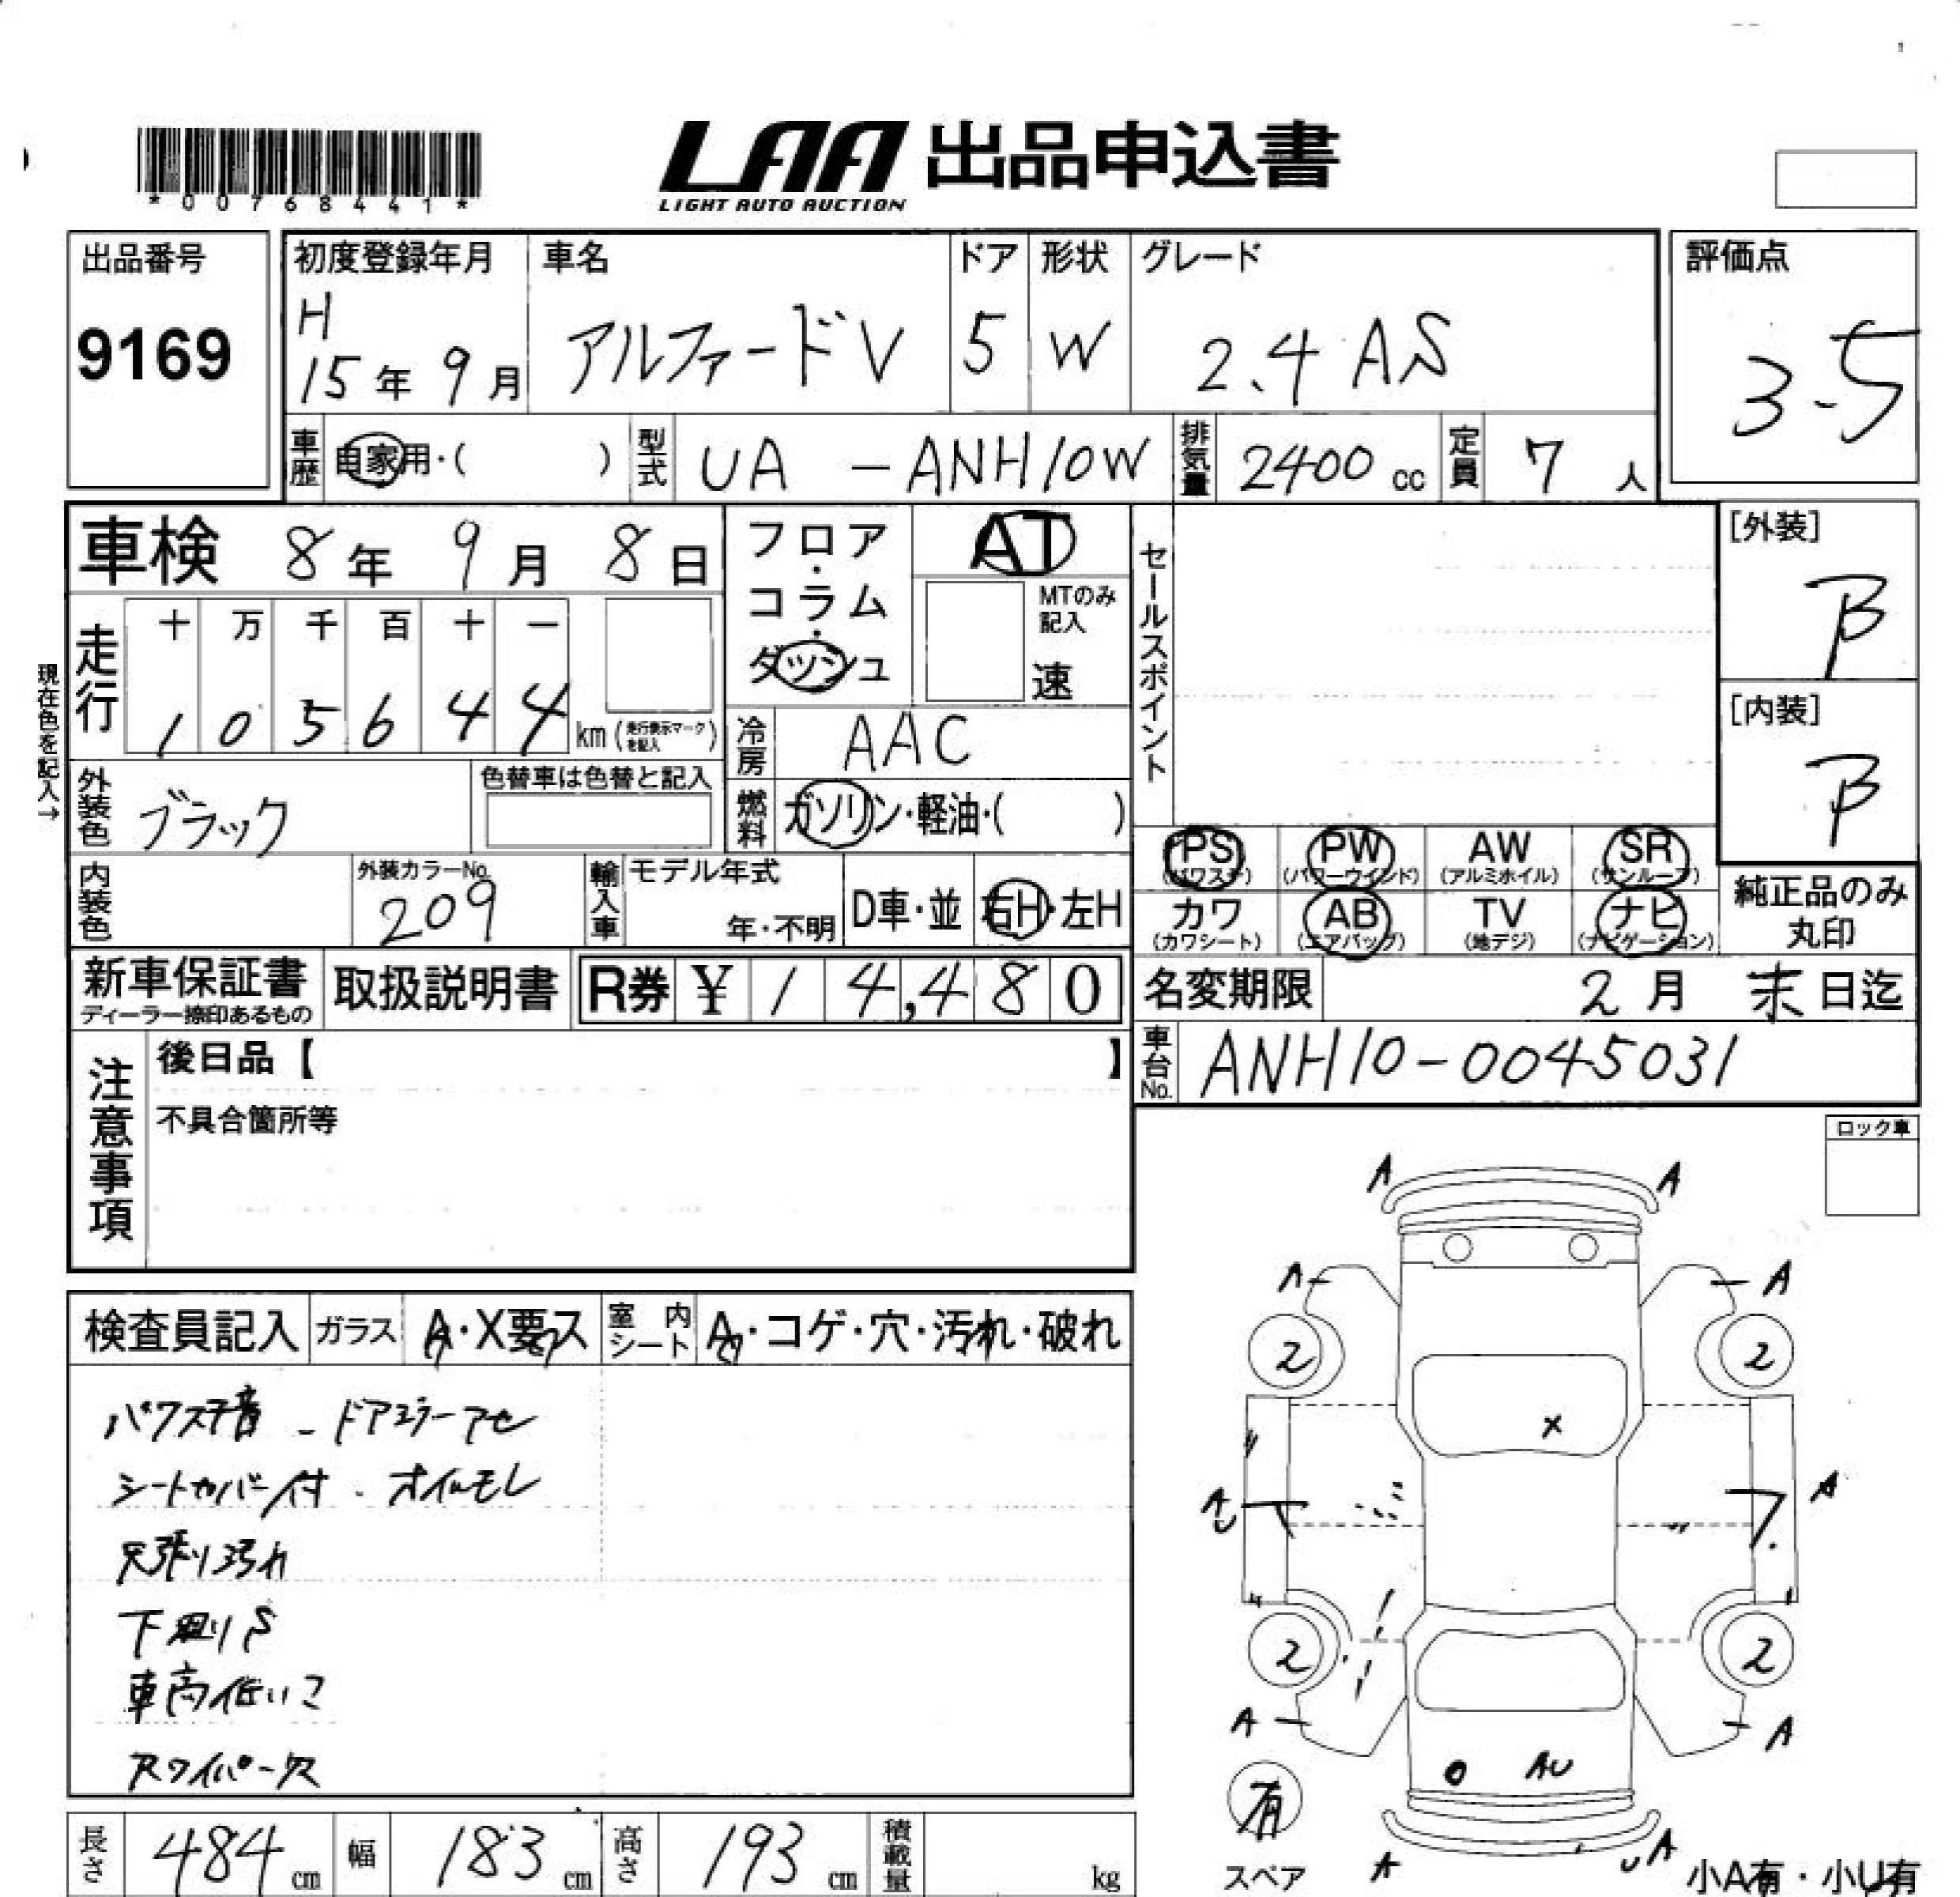 *00768441*
LAA 出品申込書
LIGHT AUTO AUCTION
出品番号
9169
初度登録年月 車名 ドア 形状 グレード 評価点
H
15年 9月 アルファードV 5 W 2.4 AS 3.5
車歴 自家用・( ) 型式 UA -ANH10W 排気量 2400 cc 定員 7 人
車検 8年 9月 8日
フロア・コラム・ダッシュ AT
MTのみ記入
速
セールスポイント
[外装]
B
[内装]
B
現在色を記入→
走行 十 万 千 百 十 一
1 0 5 6 4 4 km (走行表示マークを記入)
冷房 AAC
外装色 ブラック 色替車は色替と記入
燃料 ガソリン・軽油・( )
PS (パワステ) PW (パワーウインド) AW (アルミホイル) SR (サンルーフ)
カワ (カワシート) AB (エアバッグ) TV (地デジ) ナビ (ナビゲーション)
純正品のみ丸印
内装色 外装カラーNo. 209 輸入車 モデル年式 年・不明 D車・並 右H・左H
新車保証書 ディーラー捺印あるもの 取扱説明書 R券 ¥ 1 4,4 8 0
名変期限 2月 末日迄
車台No. ANH10-0045031
注意事項
後日品【 】
不具合箇所等
ロック車
検査員記入 ガラス A・X要ス 室内シート A・コゲ・穴・汚れ・破れ
パワステ音 - ドアミラーアセ
シートカバー付 . オイルモレ
天張り汚れ
下廻りS
車高低い
Rワイパー欠
A A
A A
2 2
X
A A
2 2
A A
AU
有
スペア
A UA
小A有・小U有
長さ 484 cm 幅 183 cm 高さ 193 cm 積載量 kg